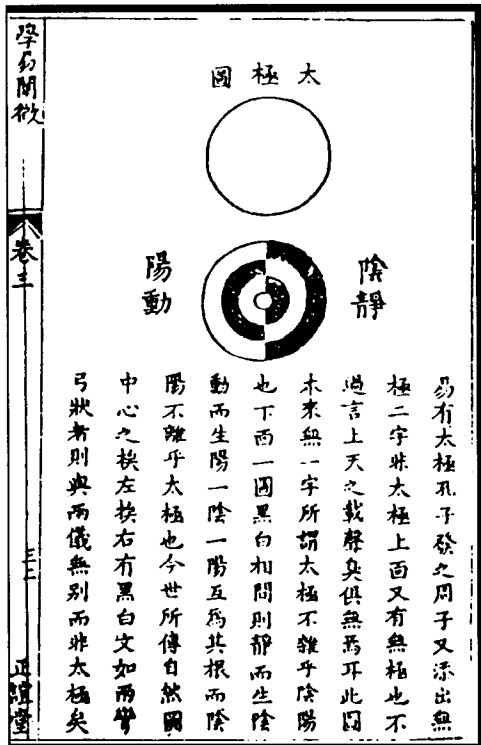 太極圖
陰靜
陽動
易有太極孔子發之周子又添出無
極二字非太極上面又有無極也不
過言上天之載聲臭俱無焉耳此圖
本來無一字所謂太極不雜乎陰陽
也下面一圖黑白相間則靜而生陰
動而生陽一陰一陽互爲其根而陰
陽不離乎太極也今世所傳自然圖
中心之挨左挨右有黑白文如兩彎
弓狀者則與兩儀無別而非太極矣
學易闡微
卷三
三二
正誼堂